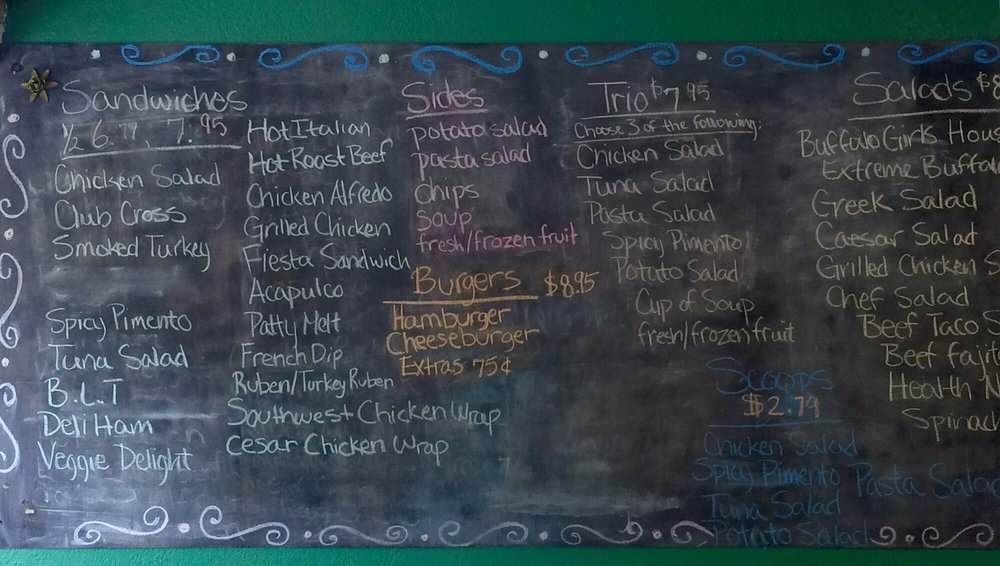 Sandwiches
1/2 6.79, 7.95
Chicken Salad
Club Cross
Smoked Turkey
Spicy Pimento
Tuna Salad
B.L.T
Deli Ham
Veggie Delight
Hot Italian
Hot Roast Beef
Chicken Alfredo
Grilled Chicken
Fiesta Sandwich
Acapulco
Patty Melt
French Dip
Ruben/Turkey Ruben
Southwest Chicken Wrap
Cesar Chicken Wrap
Sides
potato salad
pasta salad
chips
soup
fresh/frozen fruit
Burgers $8.95
Hamburger
Cheeseburger
Extras 75¢
Trio $7.95
Choose 3 of the following:
Chicken Salad
Tuna Salad
Pasta Salad
Spicy Pimento
Potato Salad
Cup of Soup
fresh/frozen fruit
Scoops
$2.79
Chicken Salad
Spicy Pimento
Tuna Salad
Potato Salad
Pasta Salad
Salads $8
Buffalo Girls Hous
Extreme Buffa
Greek Salad
Caesar Salad
Grilled Chicken S
Chef Salad
Beef Taco S
Beef fajit
Health N
Spinach